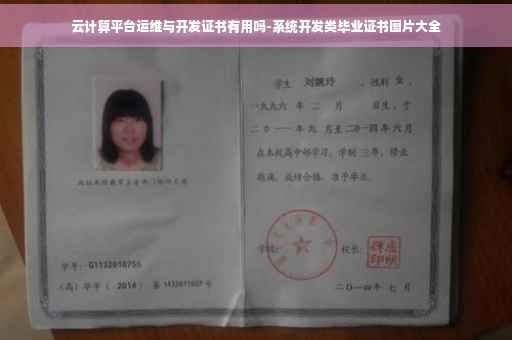 云计算平台运维与开发证书有用吗-系统开发类毕业证书图片大全
学生 刘婉玲 ，性别 女 ，
一九九六 年 二 月 日生，于
二〇一一 年 九 月至 二〇一四 年 六 月
在本校高中部学习，学制 三 年，修业
期满，成绩合格，准予毕业。
学校： 校长：
学号： G1132010755
（高）毕字（ 2014 ）第 1432011027 号
二〇一四年 七 月